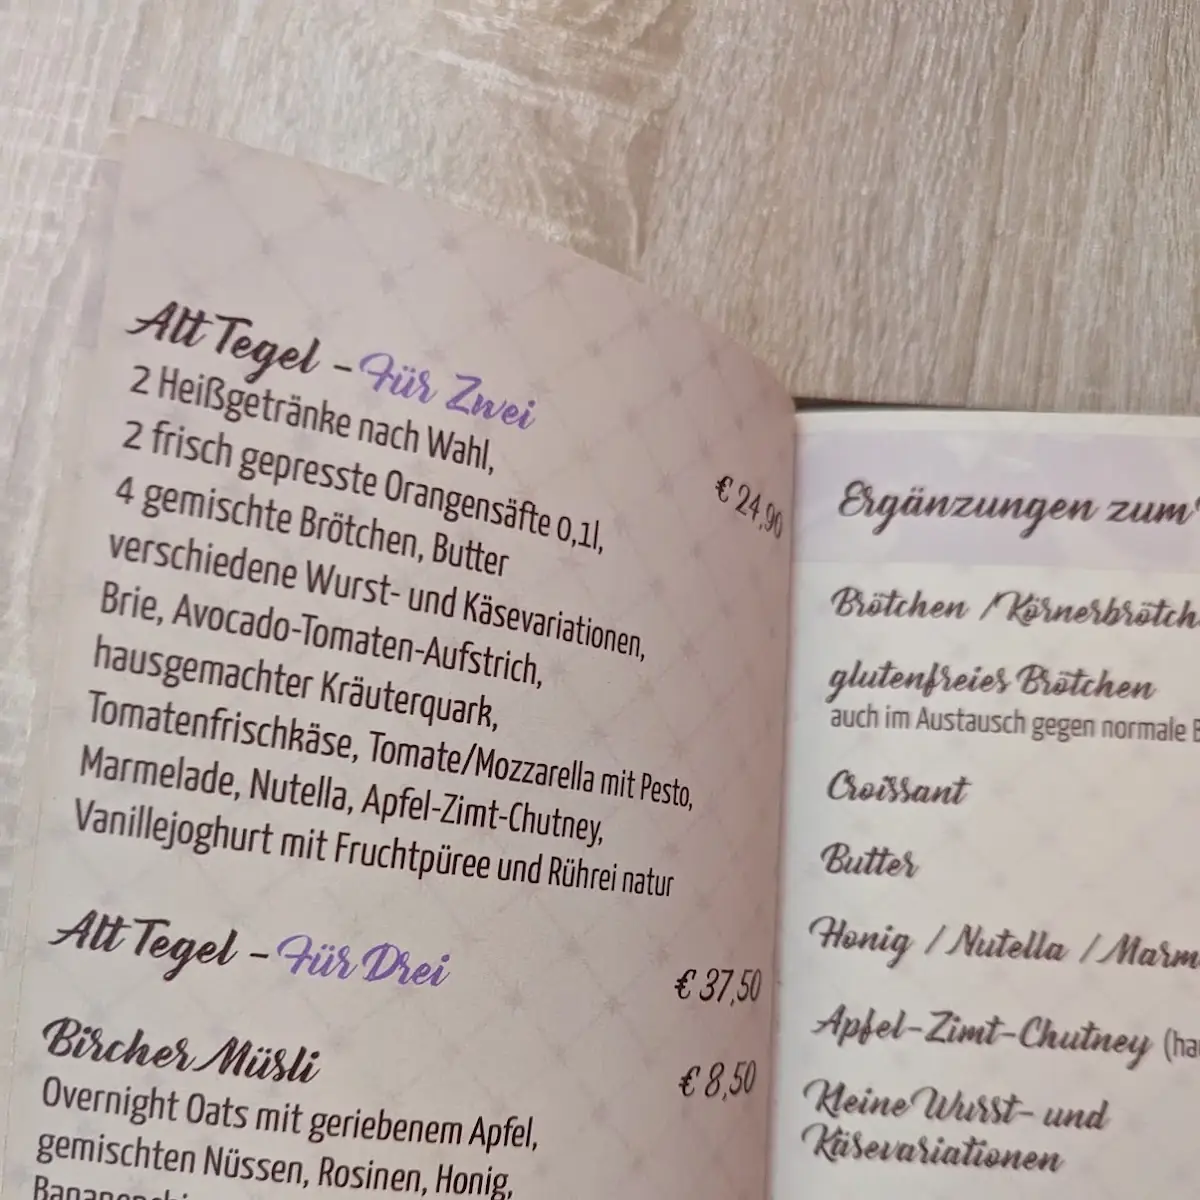 Alt Tegel - Für Zwei
2 Heißgetränke nach Wahl,
2 frisch gepresste Orangensäfte 0,1l,
€ 24,90
4 gemischte Brötchen, Butter
verschiedene Wurst- und Käsevariationen,
Brie, Avocado-Tomaten-Aufstrich,
hausgemachter Kräuterquark,
Tomatenfrischkäse, Tomate/Mozzarella mit Pesto,
Marmelade, Nutella, Apfel-Zimt-Chutney,
Vanillejoghurt mit Fruchtpüree und Rührei natur
Alt Tegel - Für Drei
€ 37,50
Bircher Müsli
€ 8,50
Overnight Oats mit geriebenem Apfel,
gemischten Nüssen, Rosinen, Honig,
Ergänzungen zum
Brötchen / Körnerbrötch
glutenfreies Brötchen
auch im Austausch gegen normale B
Croissant
Butter
Honig / Nutella / Marm
Apfel-Zimt-Chutney (ha
Kleine Wurst- und
Käsevariationen